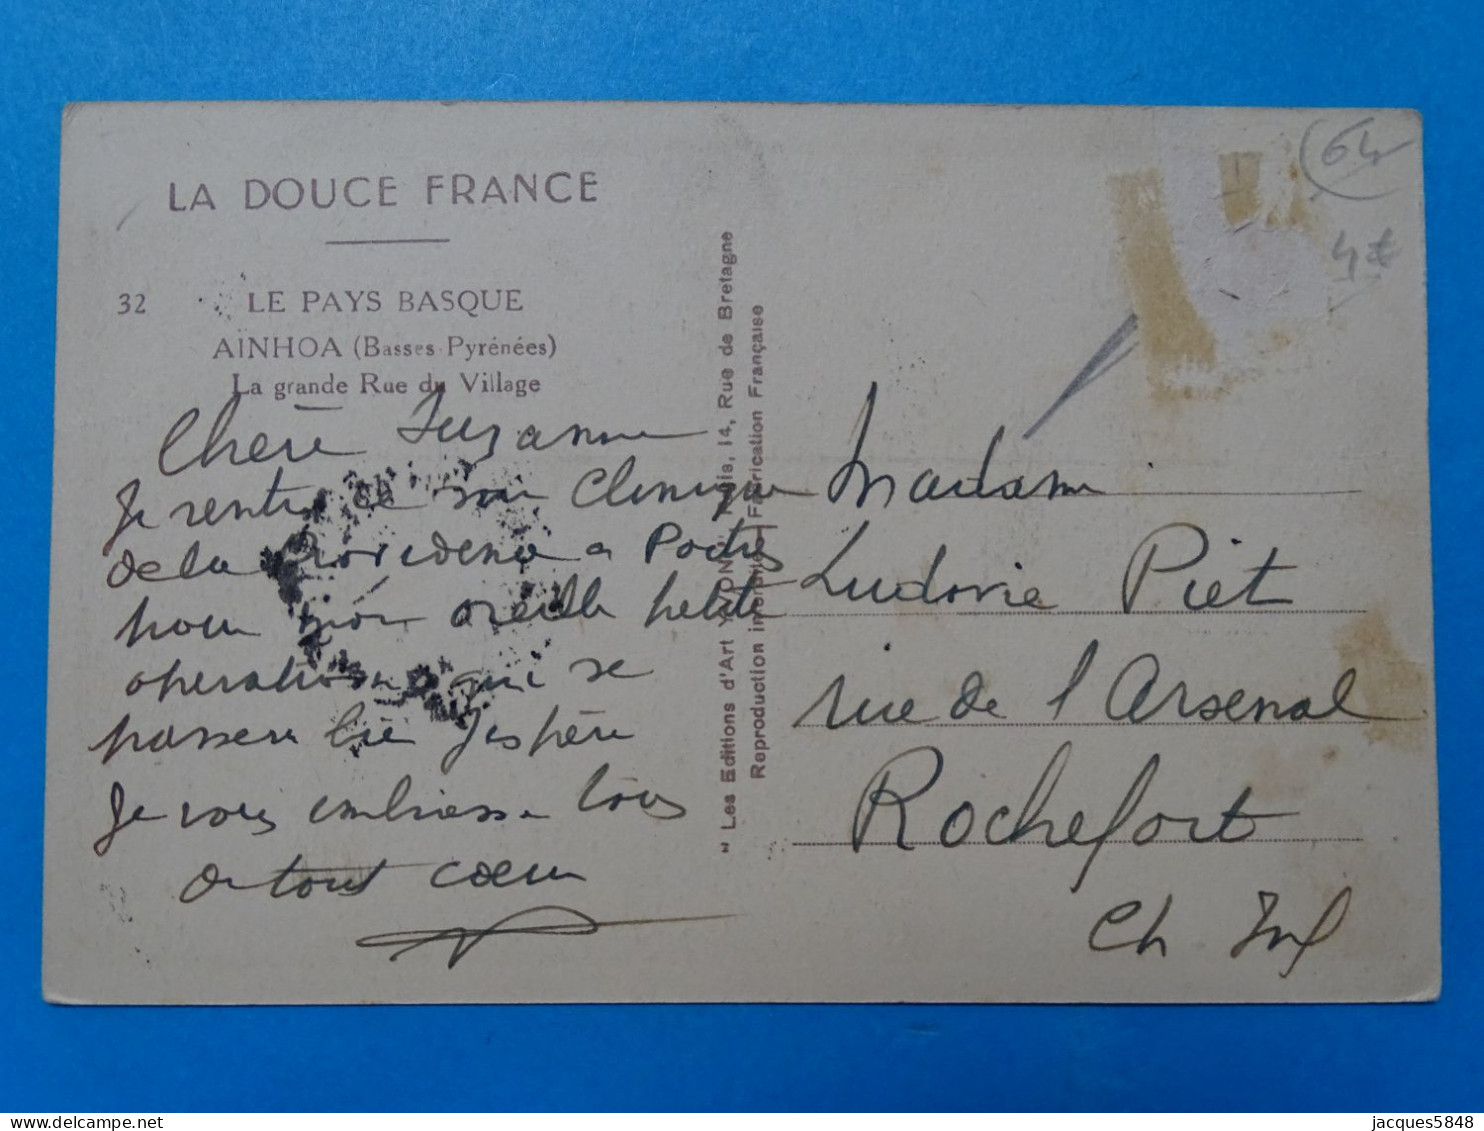 LA DOUCE FRANCE
32 LE PAYS BASQUE
AINHOA (Basses-Pyrénées)
La grande Rue du Village
Chère Suzanne
Je rentre de clinique
de la Providence a
pour mon oreille petite
operation qui se
passera bien J'espère
Je vous embrasse tous
de tout cœur
"Les Editions d'Art YVON", Paris, 14, Rue de Bretagne
Reproduction interdite - Fabrication Française
64
4€
Madame
Ludovic Piet
rue de l'Arsenal
Rochefort
Ch Inf
jacques5848